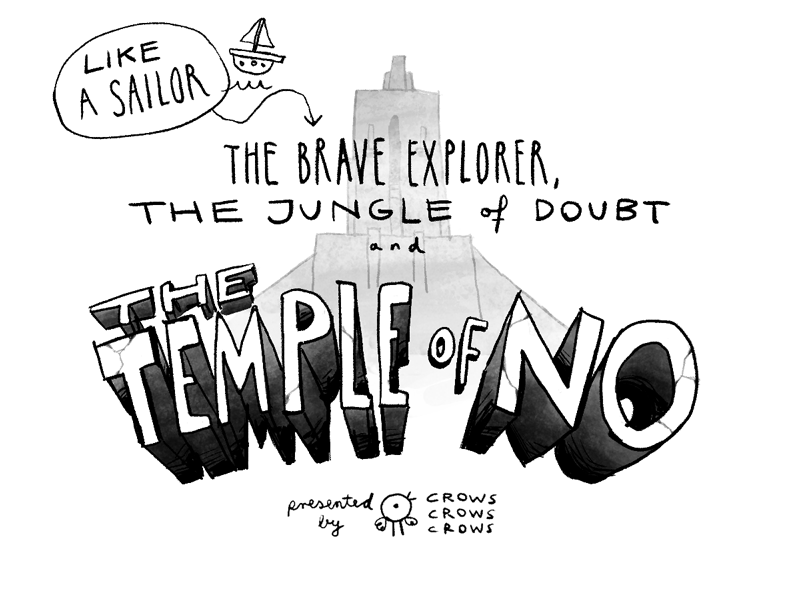 LIKE
A SAILOR
THE BRAVE EXPLORER,
THE JUNGLE of DOUBT
and
THE
TEMPLE OF NO
presented
by
CROWS
CROWS
CROWS